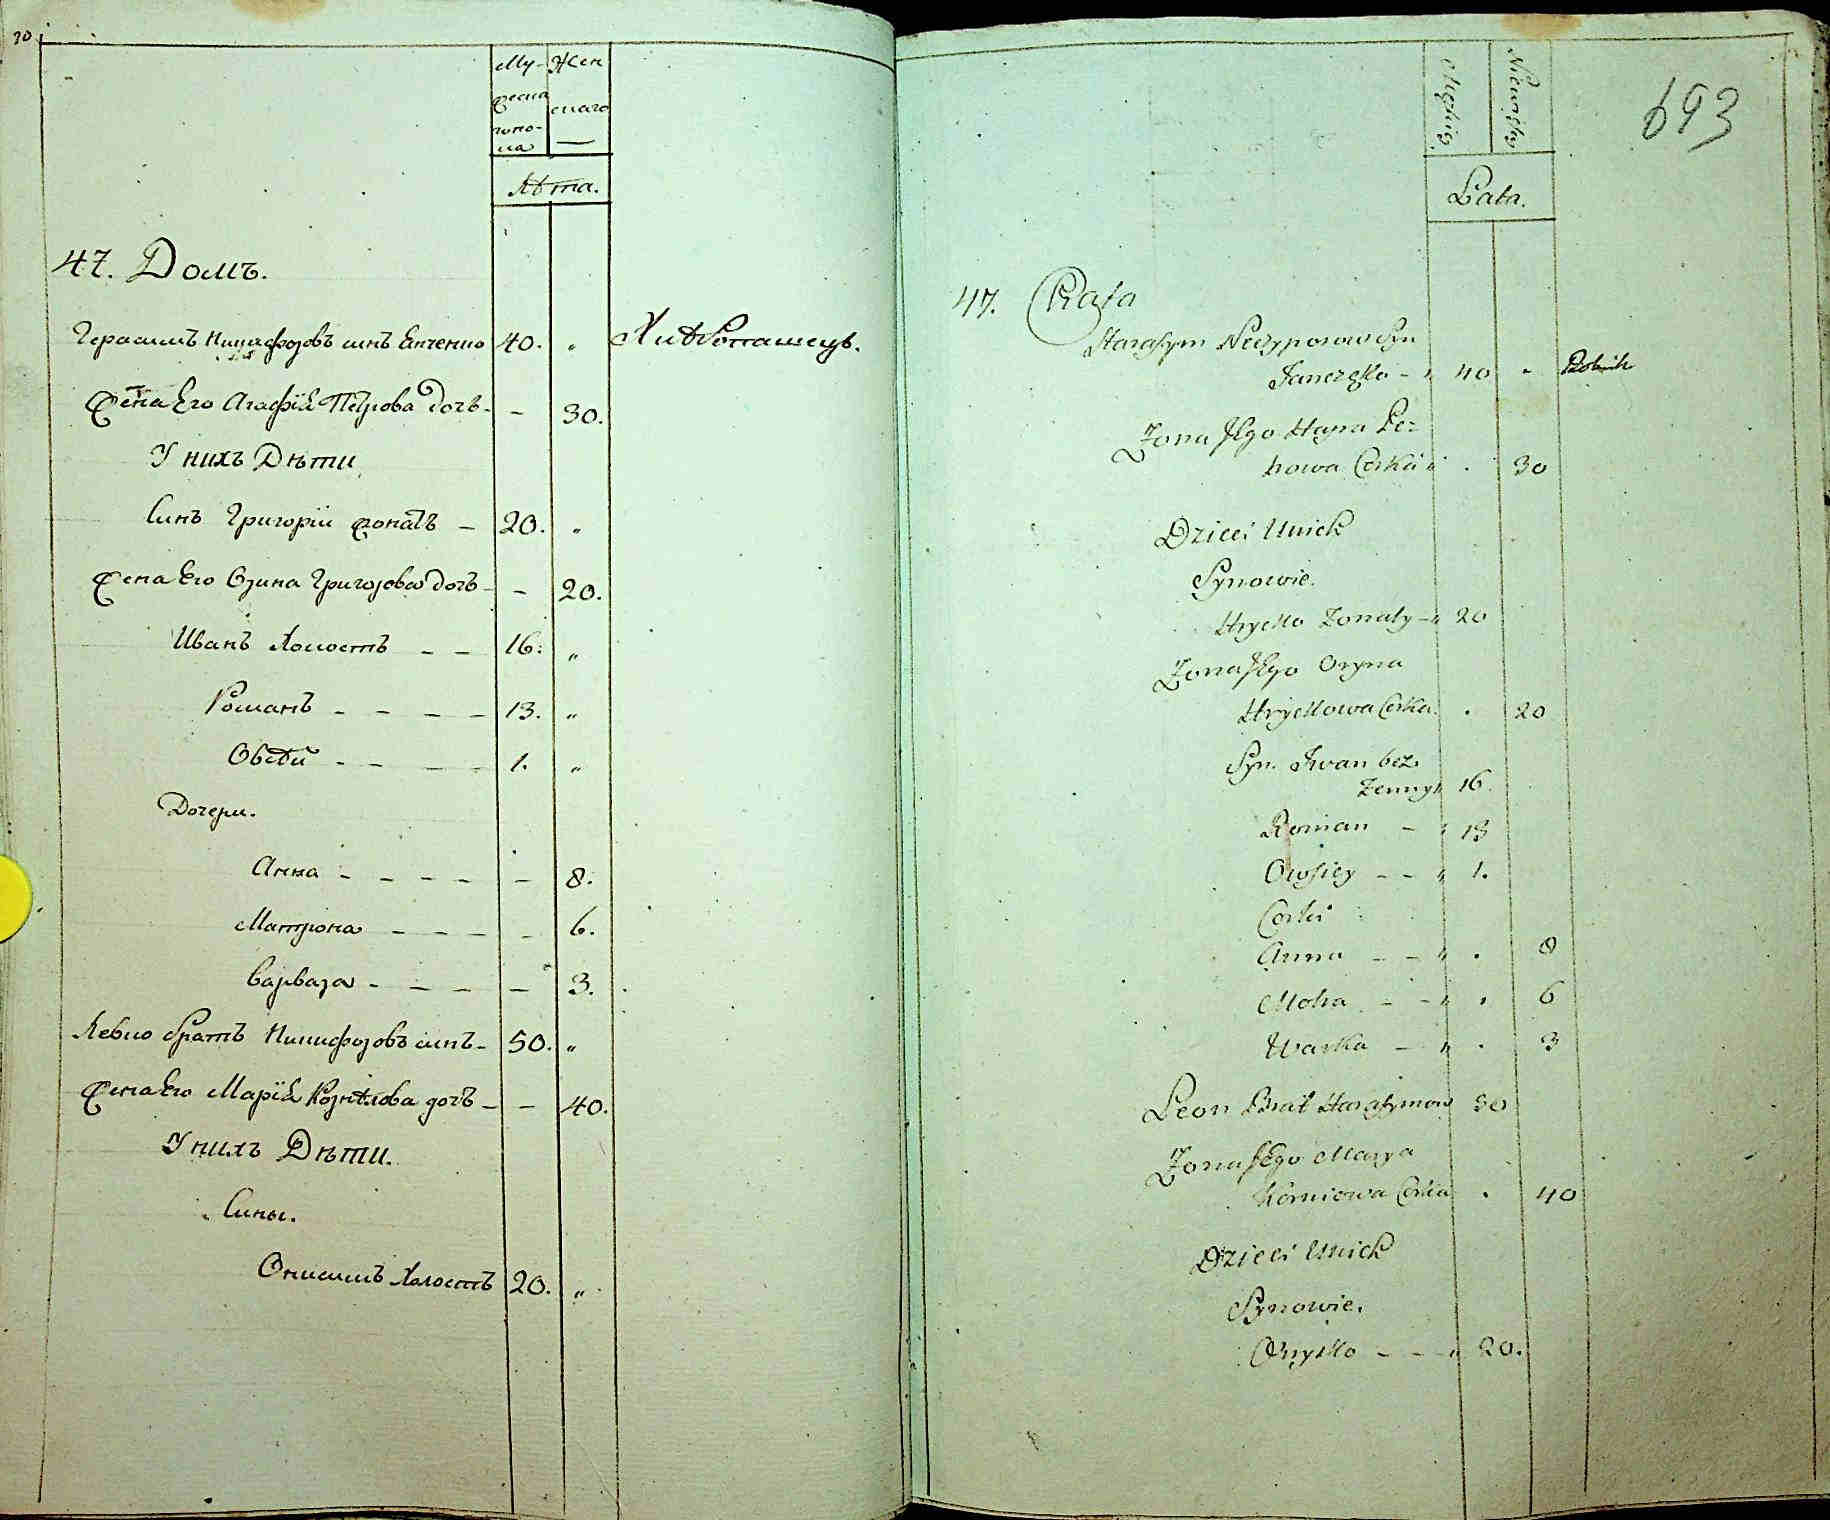 30
Му- Жен
жеска скаго
го по-
ла —
Лѣта.
47. Домъ.
Герасимъ Никифоровъ синъ Янченко 40. „ Хлѣбопашецъ.
Жена Его Агафія Петрова дочъ - – 30.
У нихъ Дѣти
Синъ Григорій жонатъ – 20. „
Жена Его Орина Григорова дочъ - – 20.
Иванъ Холостъ – – 16. „
Романъ – – – – 13. „
Овсѣй – – – – 1. „
Дочери.
Анна – – – – – 8.
Матрона – – – – – 6.
Варвара – – – – – 3.
Левко братъ Никифоровъ синъ - 50. „
Жена Его Марія Корнѣлова дочъ - – 40.
У нихъ Дѣти.
Сины.
Онисимъ Холостъ 20. „
693
Męzkiej Niewiasty
Lata.
47. Chata
Harasym Niczyporow Syn
Janczęko - „ 40 „ Rolnik
Zona Jego Hapa Pe=
trowa Corka „ . 30
Dzieci Unich
Synowie.
Hrycko Zonaty - „ 20
Zona Jego Oryna
Hryckowa Corka . 20
Syn. Iwan bez
Zenny „ 16.
Roman – „ 13
Owsiey – – „ 1.
Corki
Anna – – „ . 8
Motra – – „ . 6
Warka – „ . 3
Leon Brat Harasymow 50
Zona Jego Marya
Korniowa Corka . 40
Dzieci Unich
Synowie.
Onysko – – „ 20.